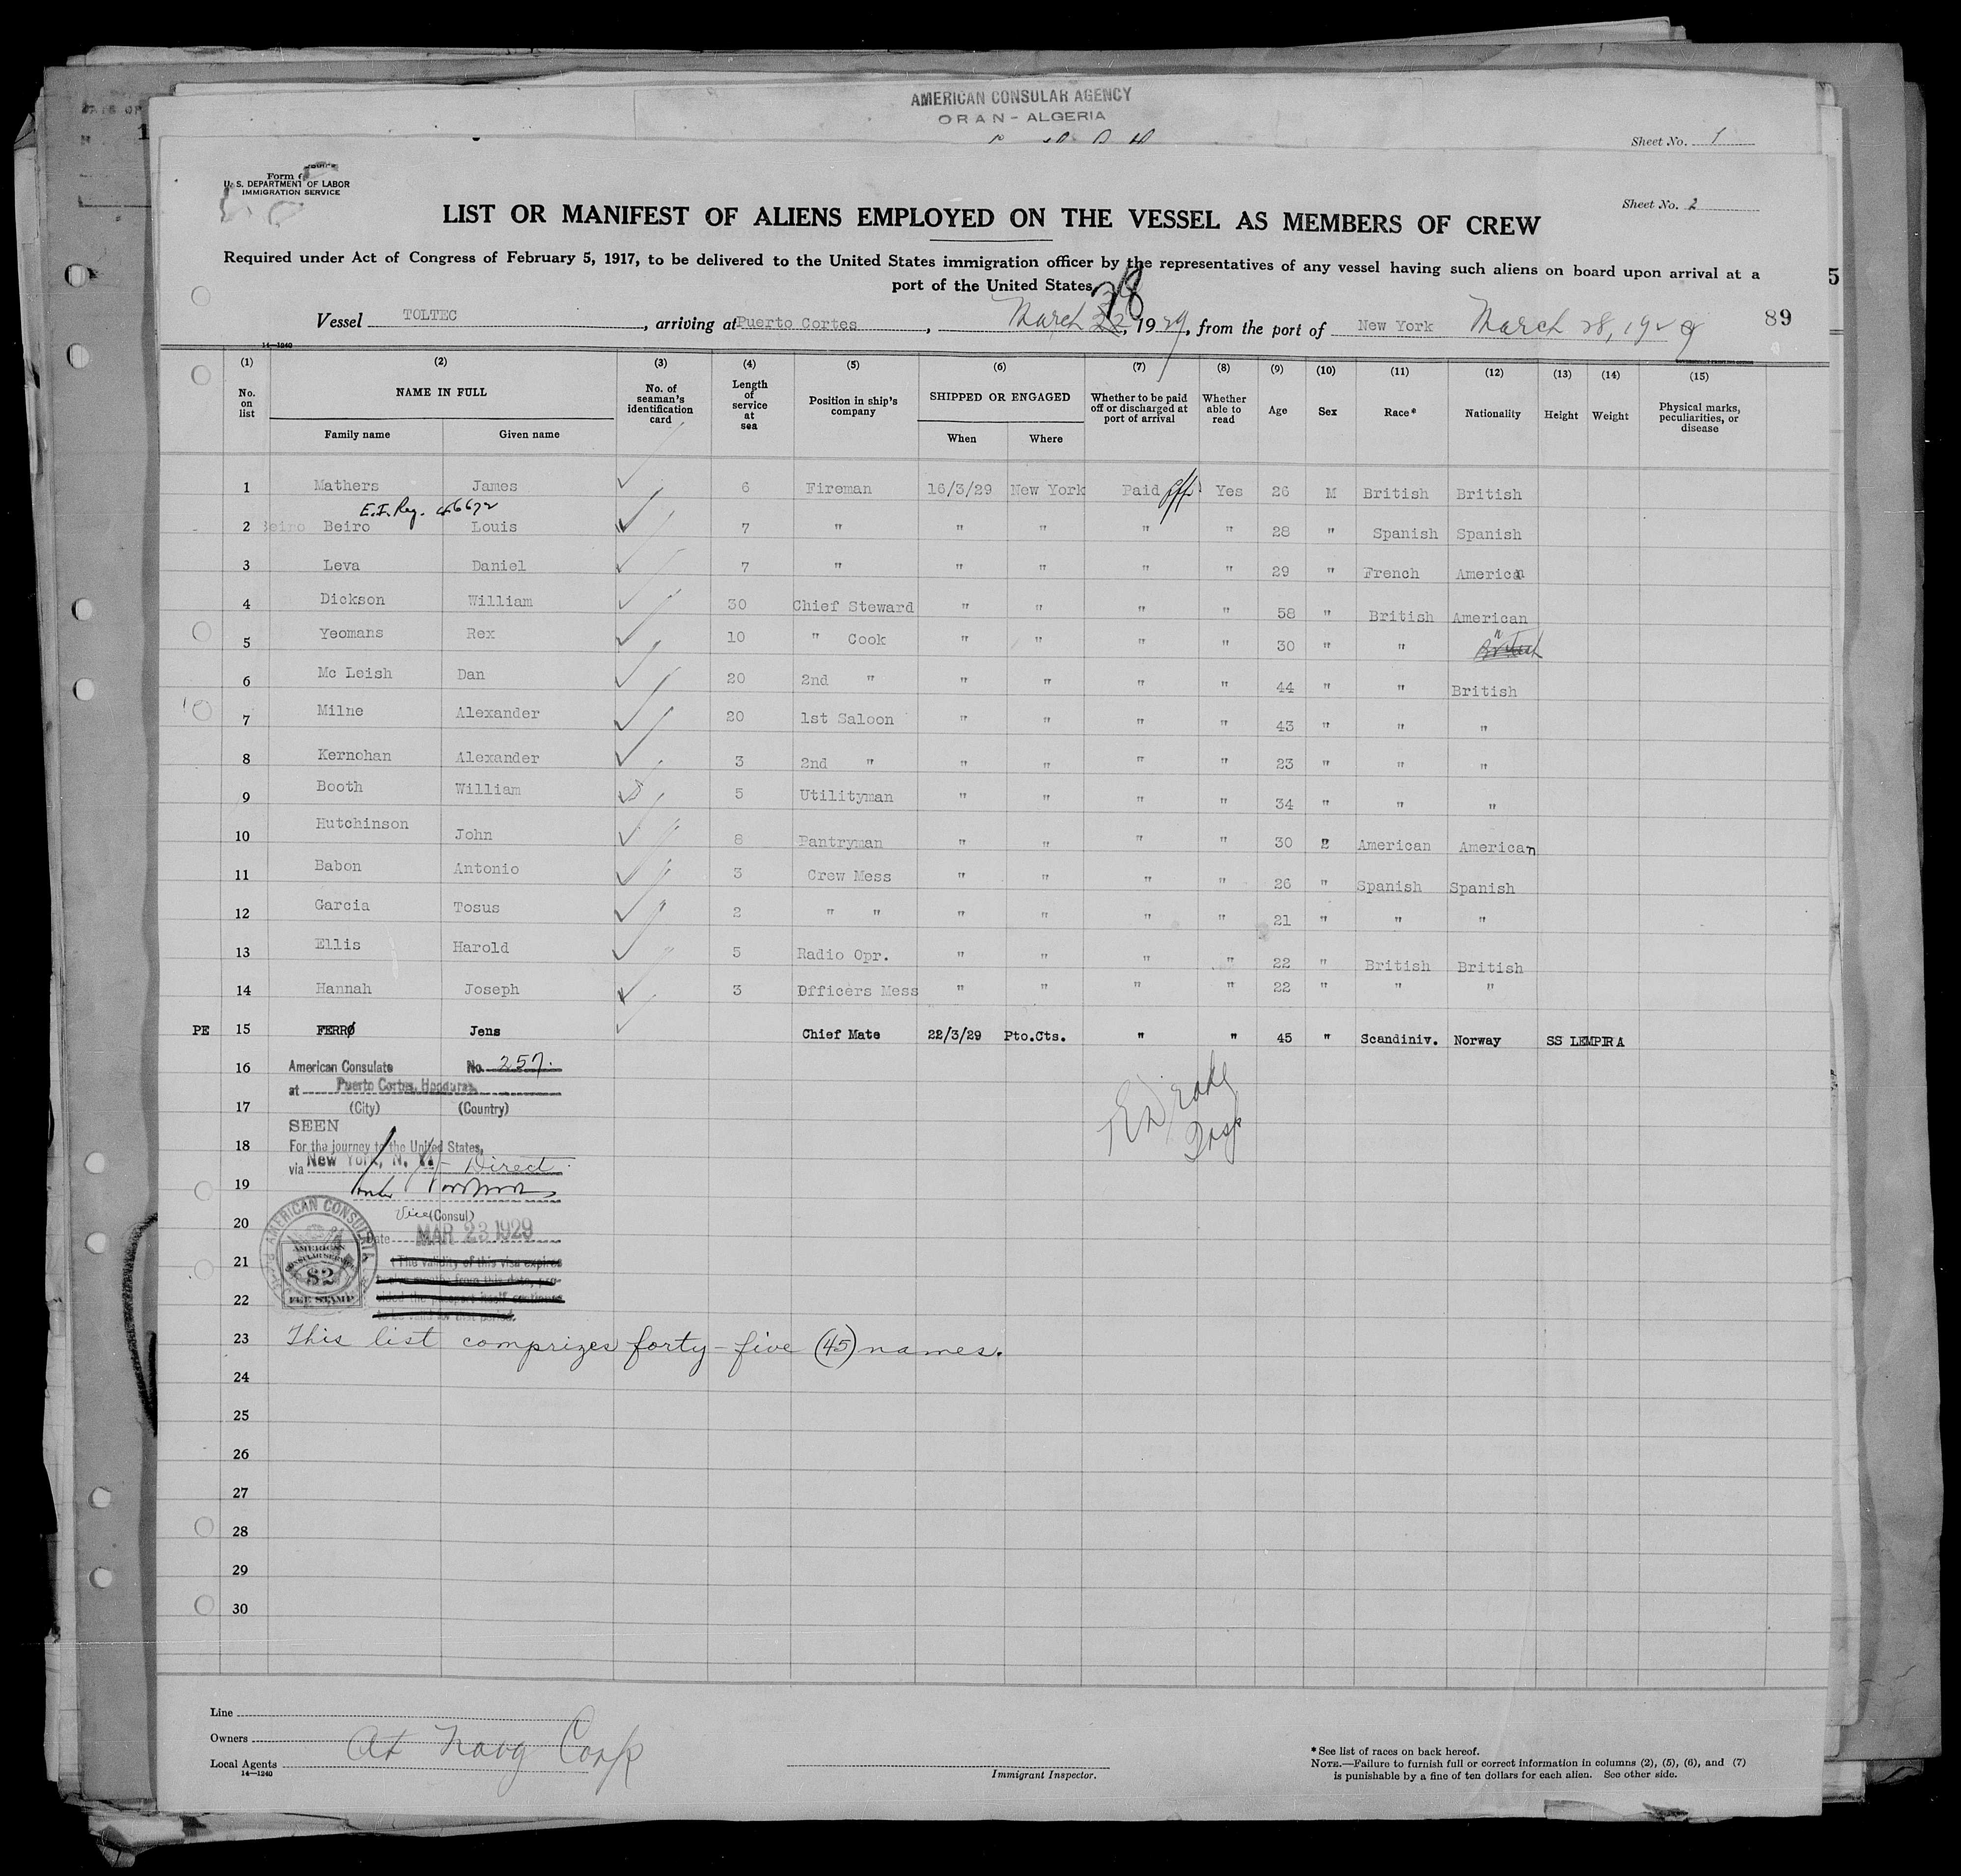 AMERICAN CONSULAR AGENCY
ORAN - ALGERIA
Sheet No. 1
U. S. DEPARTMENT OF LABOR
IMMIGRATION SERVICE
Sheet No. 2
LIST OR MANIFEST OF ALIENS EMPLOYED ON THE VESSEL AS MEMBERS OF CREW
Required under Act of Congress of February 5, 1917, to be delivered to the United States immigration officer by the representatives of any vessel having such aliens on board upon arrival at a
port of the United States
5
Vessel TOLTEC, arriving at Puerto Cortes, March 22, 28 1929, from the port of New York March 28, 1929
89
14—1240
(1) (2) (3) (4) (5) (6) (7) (8) (9) (10) (11) (12) (13) (14) (15)
No. on list NAME IN FULL Family name Given name No. of seaman's identification card Length of service at sea Position in ship's company SHIPPED OR ENGAGED When Where Whether to be paid off or discharged at port of arrival Whether able to read Age Sex Race* Nationality Height Weight Physical marks, peculiarities, or disease
1 Mathers James 6 Fireman 16/3/29 New York Paid off Yes 26 M British British
E.I. Reg. 46672
2 Beiro Beiro Louis 7 " " " " " 28 " Spanish Spanish
3 Leva Daniel 7 " " " " " 29 " French American
4 Dickson William 30 Chief Steward " " " " 58 " British American
5 Yeomans Rex 10 " Cook " " " " 30 " " " British
6 Mc Leish Dan 20 2nd " " " " " 44 " " British
7 Milne Alexander 20 1st Saloon " " " " 43 " " "
8 Kernohan Alexander 3 2nd " " " " " 23 " " "
9 Booth William 5 Utilityman " " " " 34 " " "
10 Hutchinson John 8 Pantryman " " " " 30 " American American
11 Babon Antonio 3 Crew Mess " " " " 26 " Spanish Spanish
12 Garcia Tosus 2 " " " " " " 21 " " "
13 Ellis Harold 5 Radio Opr. " " " " 22 " British British
14 Hannah Joseph 3 Officers Mess " " " " 22 " " "
PE 15 FERRØ Jens Chief Mate 22/3/29 Pto.Cts. " " 45 " Scandiniv. Norway SS LEMPIRA
16 American Consulate No. 257.
at Puerto Cortes, Honduras
17 (City) (Country)
SEEN
18 For the journey to the United States,
via New York, N. Y. - Direct
19
Vice (Consul)
20 Date MAR 23 1929
AMERICAN CONSULAR SERVICE
$2
FEE STAMP
21 (The validity of this visa expires
twelve months from this date, pro-
22 vided the passport itself continues
to be valid for that period.
23 This list comprizes forty-five (45) names.
24
25
26
27
28
29
30
Line
Owners At Navg Corp
Local Agents
14—1240
Immigrant Inspector.
* See list of races on back hereof.
NOTE.—Failure to furnish full or correct information in columns (2), (5), (6), and (7)
is punishable by a fine of ten dollars for each alien. See other side.